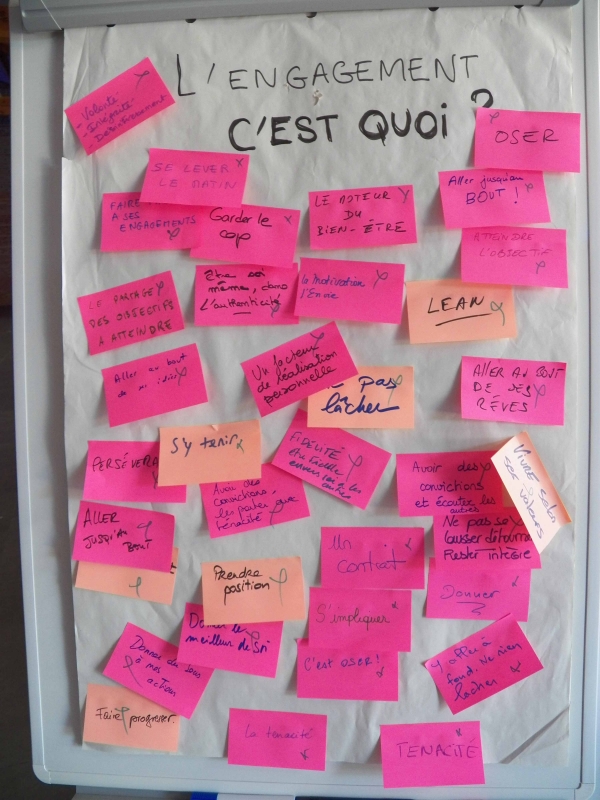 L'ENGAGEMENT
C'EST QUOI ?
- Volonté
- Intégrité
- Désintéressement
OSER
SE LEVER
LE MATIN
Aller jusqu'au
BOUT !
FAIRE
A SES
ENGAGEMENTS
Garder le
cap
LE MOTEUR
DU
BIEN-ÊTRE
ATTEINDRE
L'OBJECTIF
LE PARTAGE
DES OBJECTIFS
A ATTEINDRE
Être soi
même, dans
l'authenticité
la motivation
l'Envie
LEAN
Aller au bout
de
Un facteur
de réalisation
personnelle
pas
lâcher
ALLER AU BOUT
DE SES
RÊVES
PERSÉVÉRA
S'y tenir
FIDÉLITÉ
Avoir des
convictions
et écouter les
autres
VIVRE selon
ses valeurs
Avoir des
convictions,
les porter avec
ténacité
ALLER
JUSQU'AU
BOUT
Ne pas se
laisser détourner
Rester intègre
Un
contrat
Prendre
position
Donner
S'impliquer
Donner le
meilleur de soi
Donner du sens
à mes
actions
C'est OSER !
Y aller à
fond. Ne rien
lâcher
Faire progresser.
La tenacité
TENACITÉ